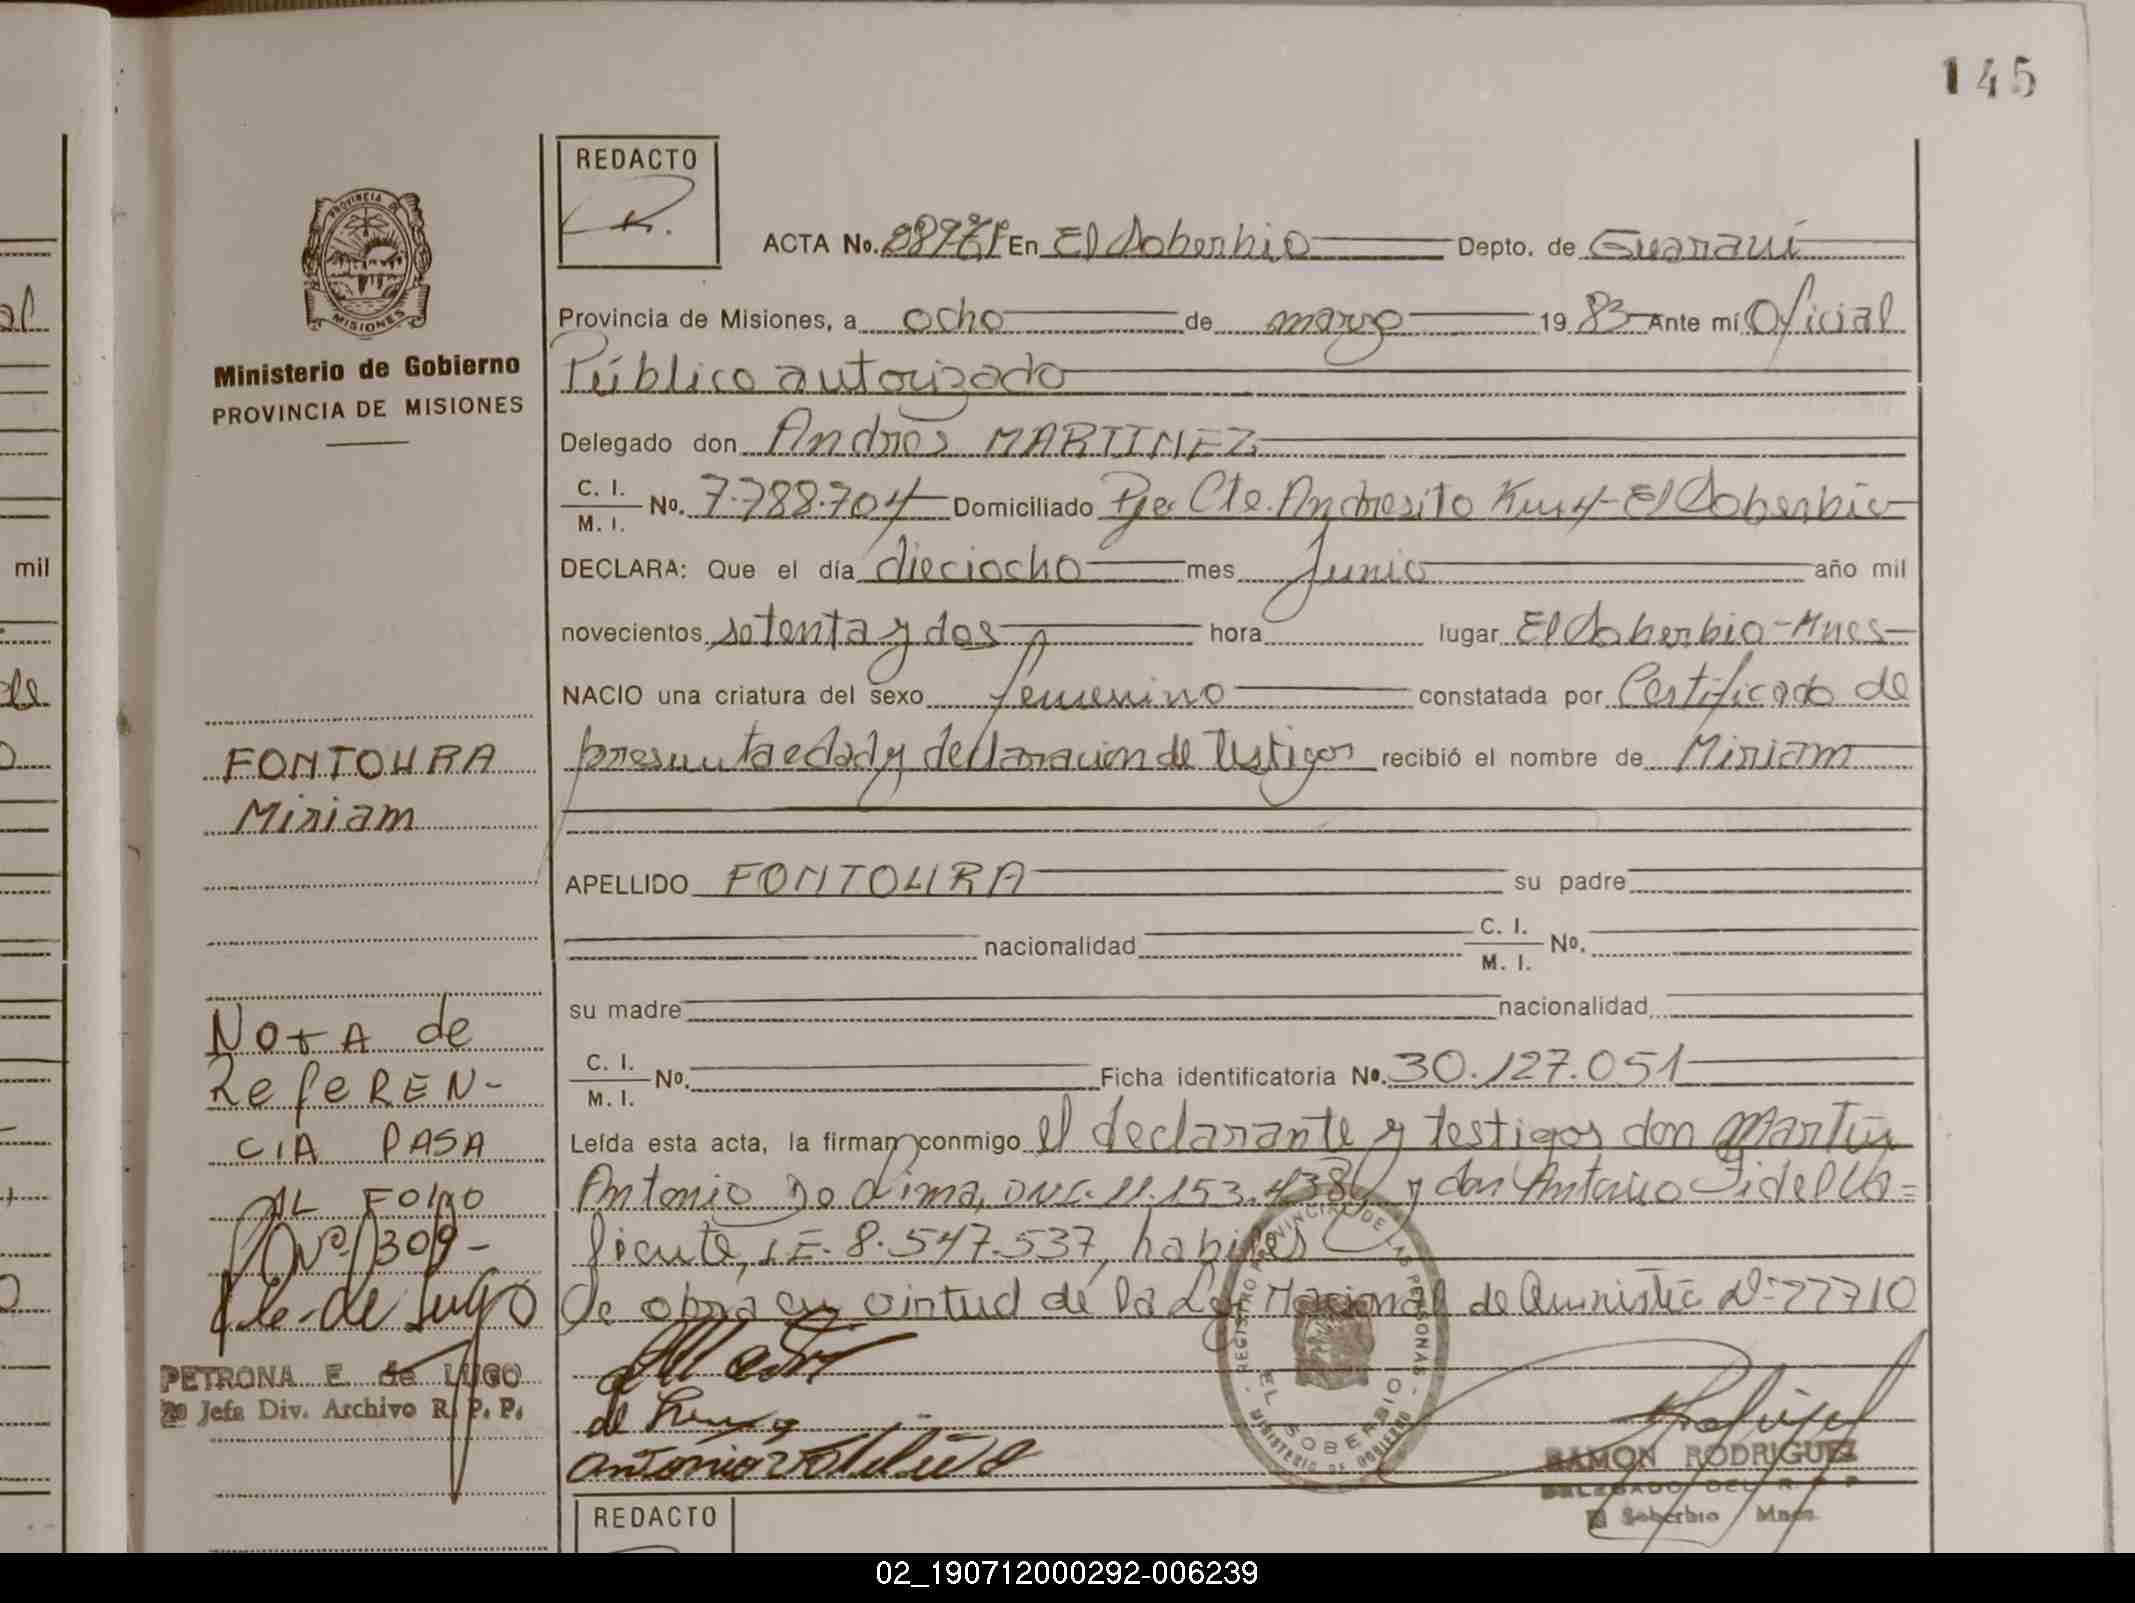 145
REDACTO
ACTA No. En El Soberbio Depto. de Guaraní
PROVINCIA DE
MISIONES
Provincia de Misiones, a ocho de marzo 1983 Ante mí Oficial
Ministerio de Gobierno
PROVINCIA DE MISIONES
Público autorizado
Delegado don Andrés MARTINEZ
C. I.
M. I.
No. 7.788.704 Domiciliado Pje Cte. Andresito Km 4 - El Soberbio
mil
DECLARA: Que el día dieciocho mes Junio año mil
novecientos setenta y dos hora lugar El Soberbio - Mnes
NACIO una criatura del sexo femenino constatada por Certificado de
presunta edad y declaracion de testigos recibió el nombre de Miriam
FONTOURA
Miriam
APELLIDO FONTOURA su padre
nacionalidad C. I.
M. I.
No.
su madre nacionalidad
NOTA de
RefeREN-
CIA PASA
AL FOLIO
Nº 309-
C. I.
M. I.
No. Ficha identificatoria No. 30.127.051
Leída esta acta, la firman conmigo el declarante y testigos don Martín
Antonio Do Lima, DNI. 11.153.438 y don Antonio Fidel Va-
liente, L.E. 8.547.537, habiles
de obra en virtud de la Ley Nacional de Amnistía Nº 22710
PETRONA E. de LUGO
Jefa Div. Archivo R. P. P.
REGISTRO PROVINCIAL DE LAS PERSONAS
EL SOBERBIO
MINISTERIO DE GOBIERNO
RAMON RODRIGUEZ
DELEGADO DEL R P P
El Soberbio Mnes.
REDACTO
02_190712000292-006239